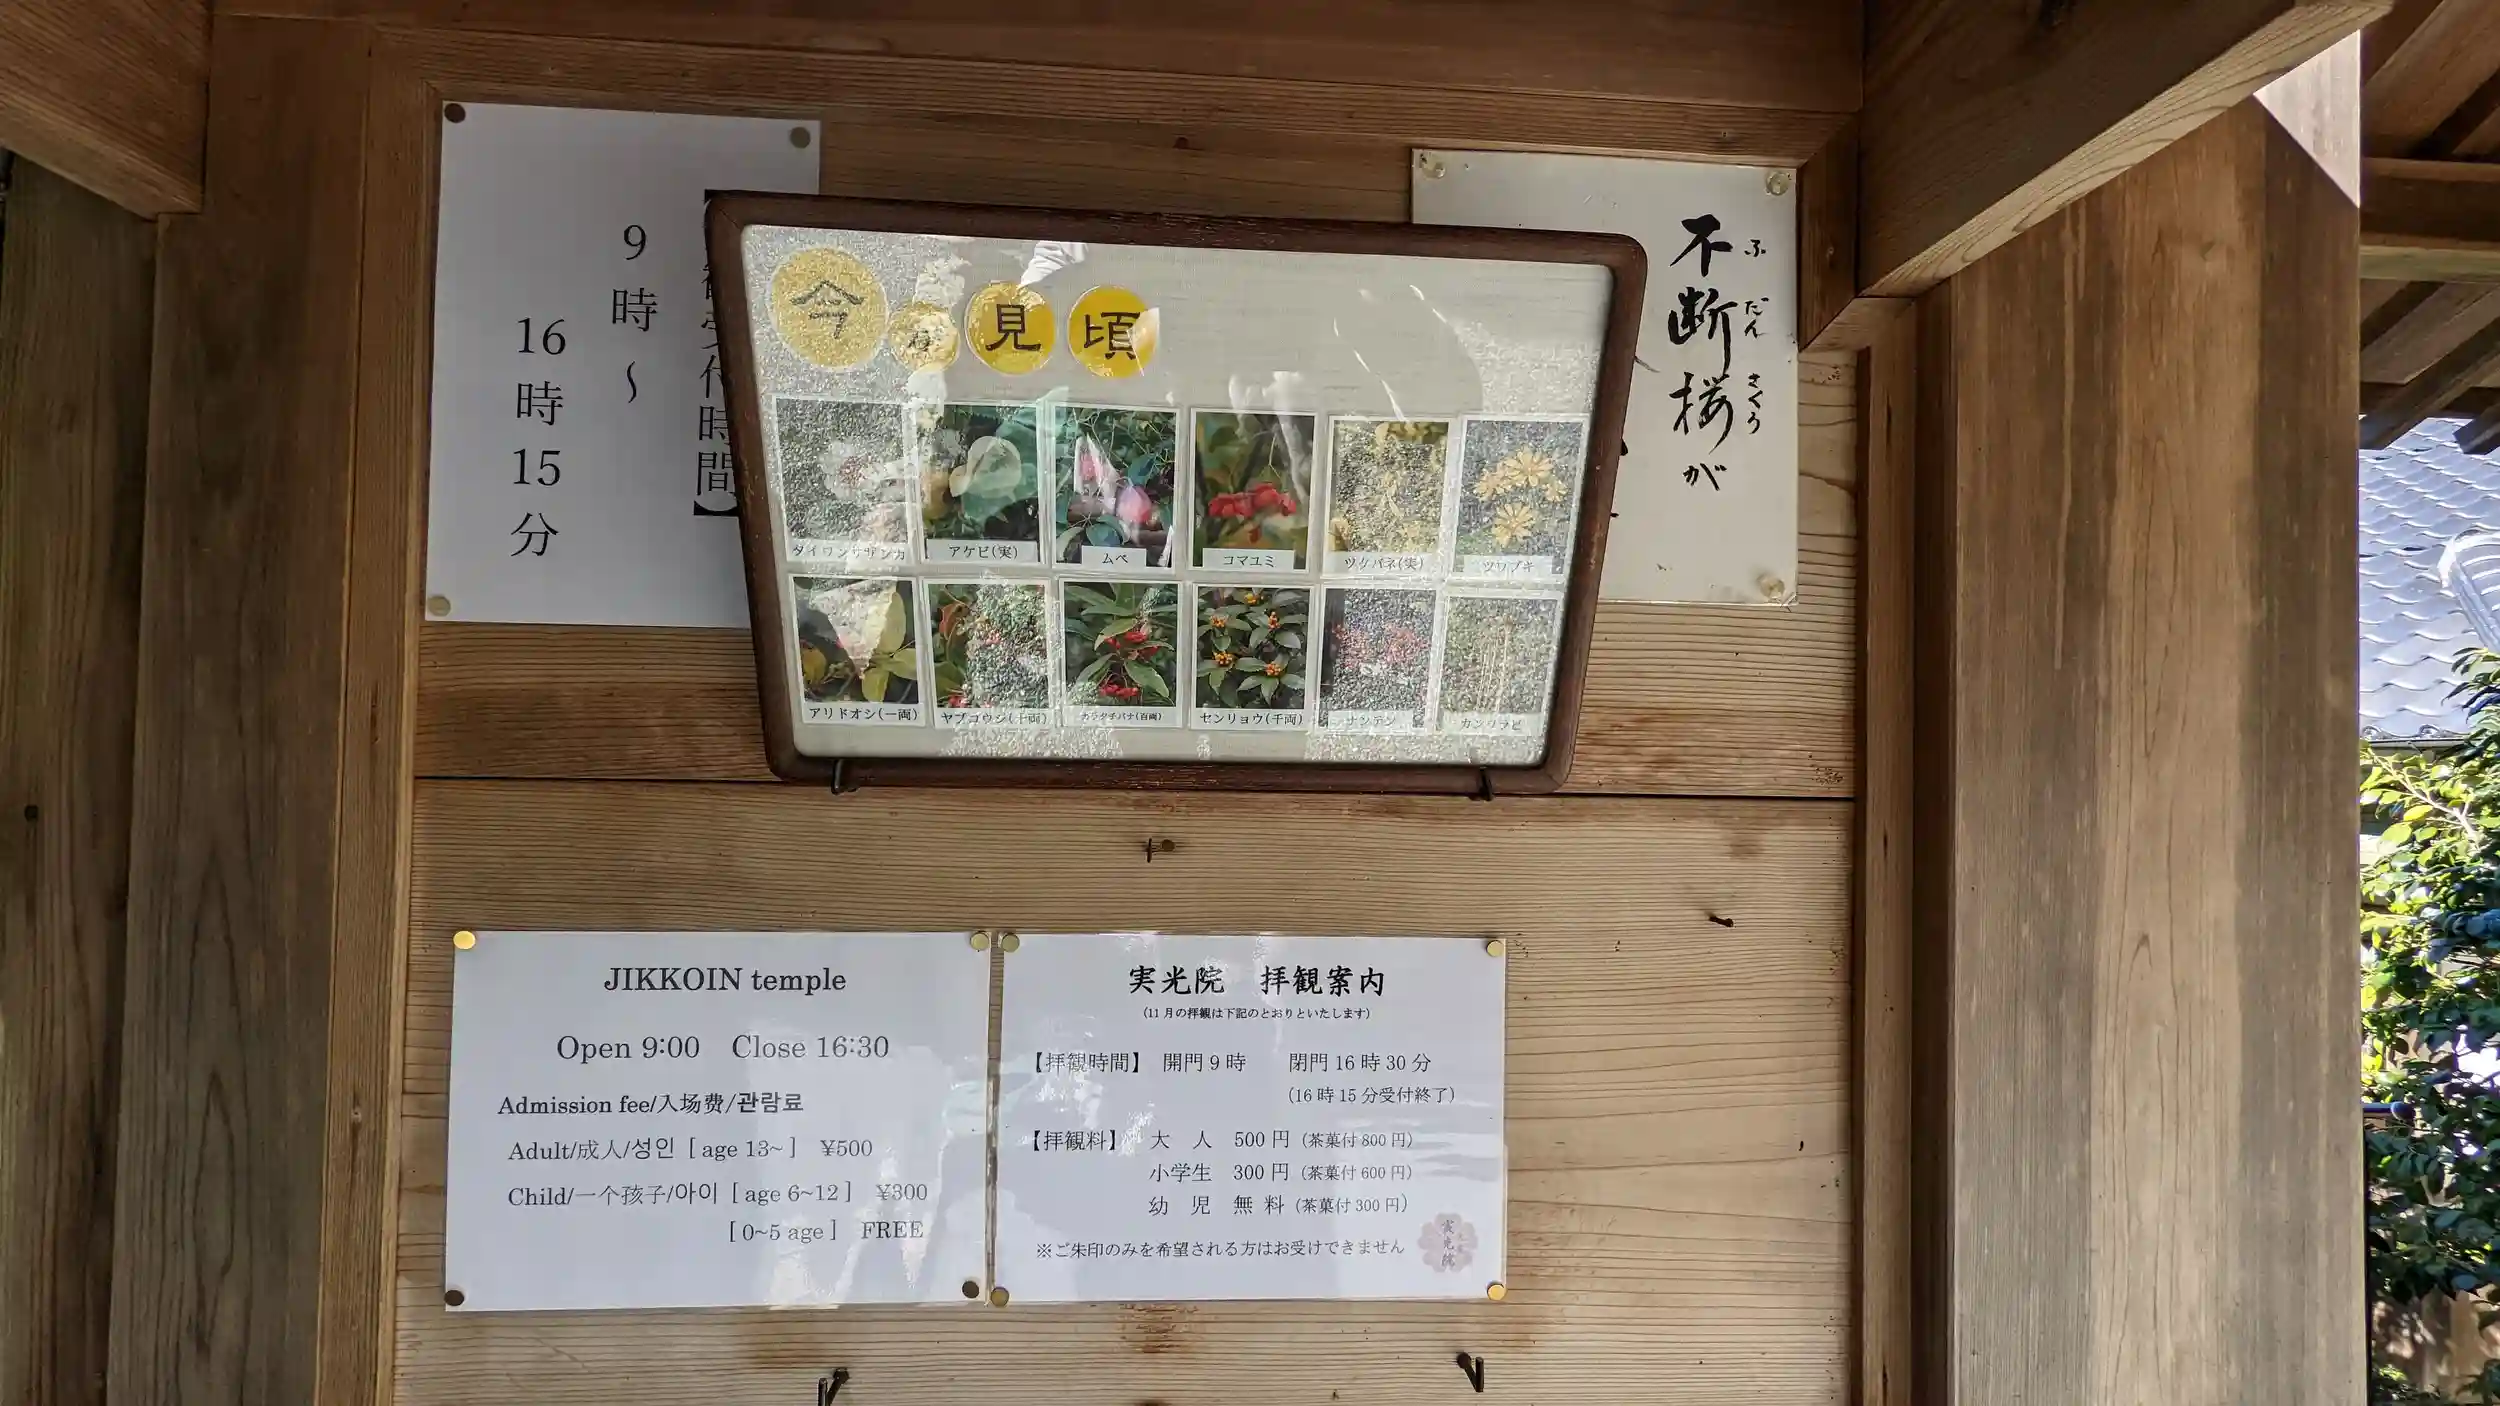 9時～
16時15分
受付時間】
今が見頃
ダイワンサザンカ
アケビ(実)
ムベ
コマユミ
ツクバネ(実)
ツワブキ
アリドオシ(一両)
ヤブコウジ(十両)
カラタチバナ(百両)
センリョウ(千両)
ナンテン
カンワラビ
不断桜が
ふだんざくら
JIKKOIN temple
Open 9:00 Close 16:30
Admission fee/入场费/관람료
Adult/成人/성인 [ age 13~ ] ¥500
Child/一个孩子/아이 [ age 6~12 ] ¥300
[ 0~5 age ] FREE
実光院 拝観案内
(11月の拝観は下記のとおりといたします)
【拝観時間】 開門9時 閉門16時30分
(16時15分受付終了)
【拝観料】 大 人 500円 (茶菓付800円)
小学生 300円 (茶菓付600円)
幼 児 無 料 (茶菓付300円)
※ご朱印のみを希望される方はお受けできません
実光院